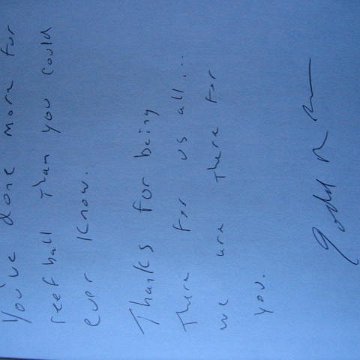 You've done more for
reef ball than you could
ever know.
Thanks for being
There for us all...
we are there for
you.
Todd